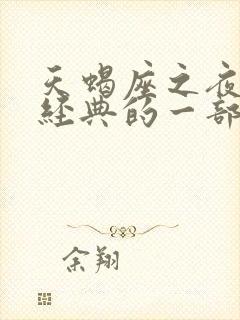 天蝎座之夜
经典的一部
余翔